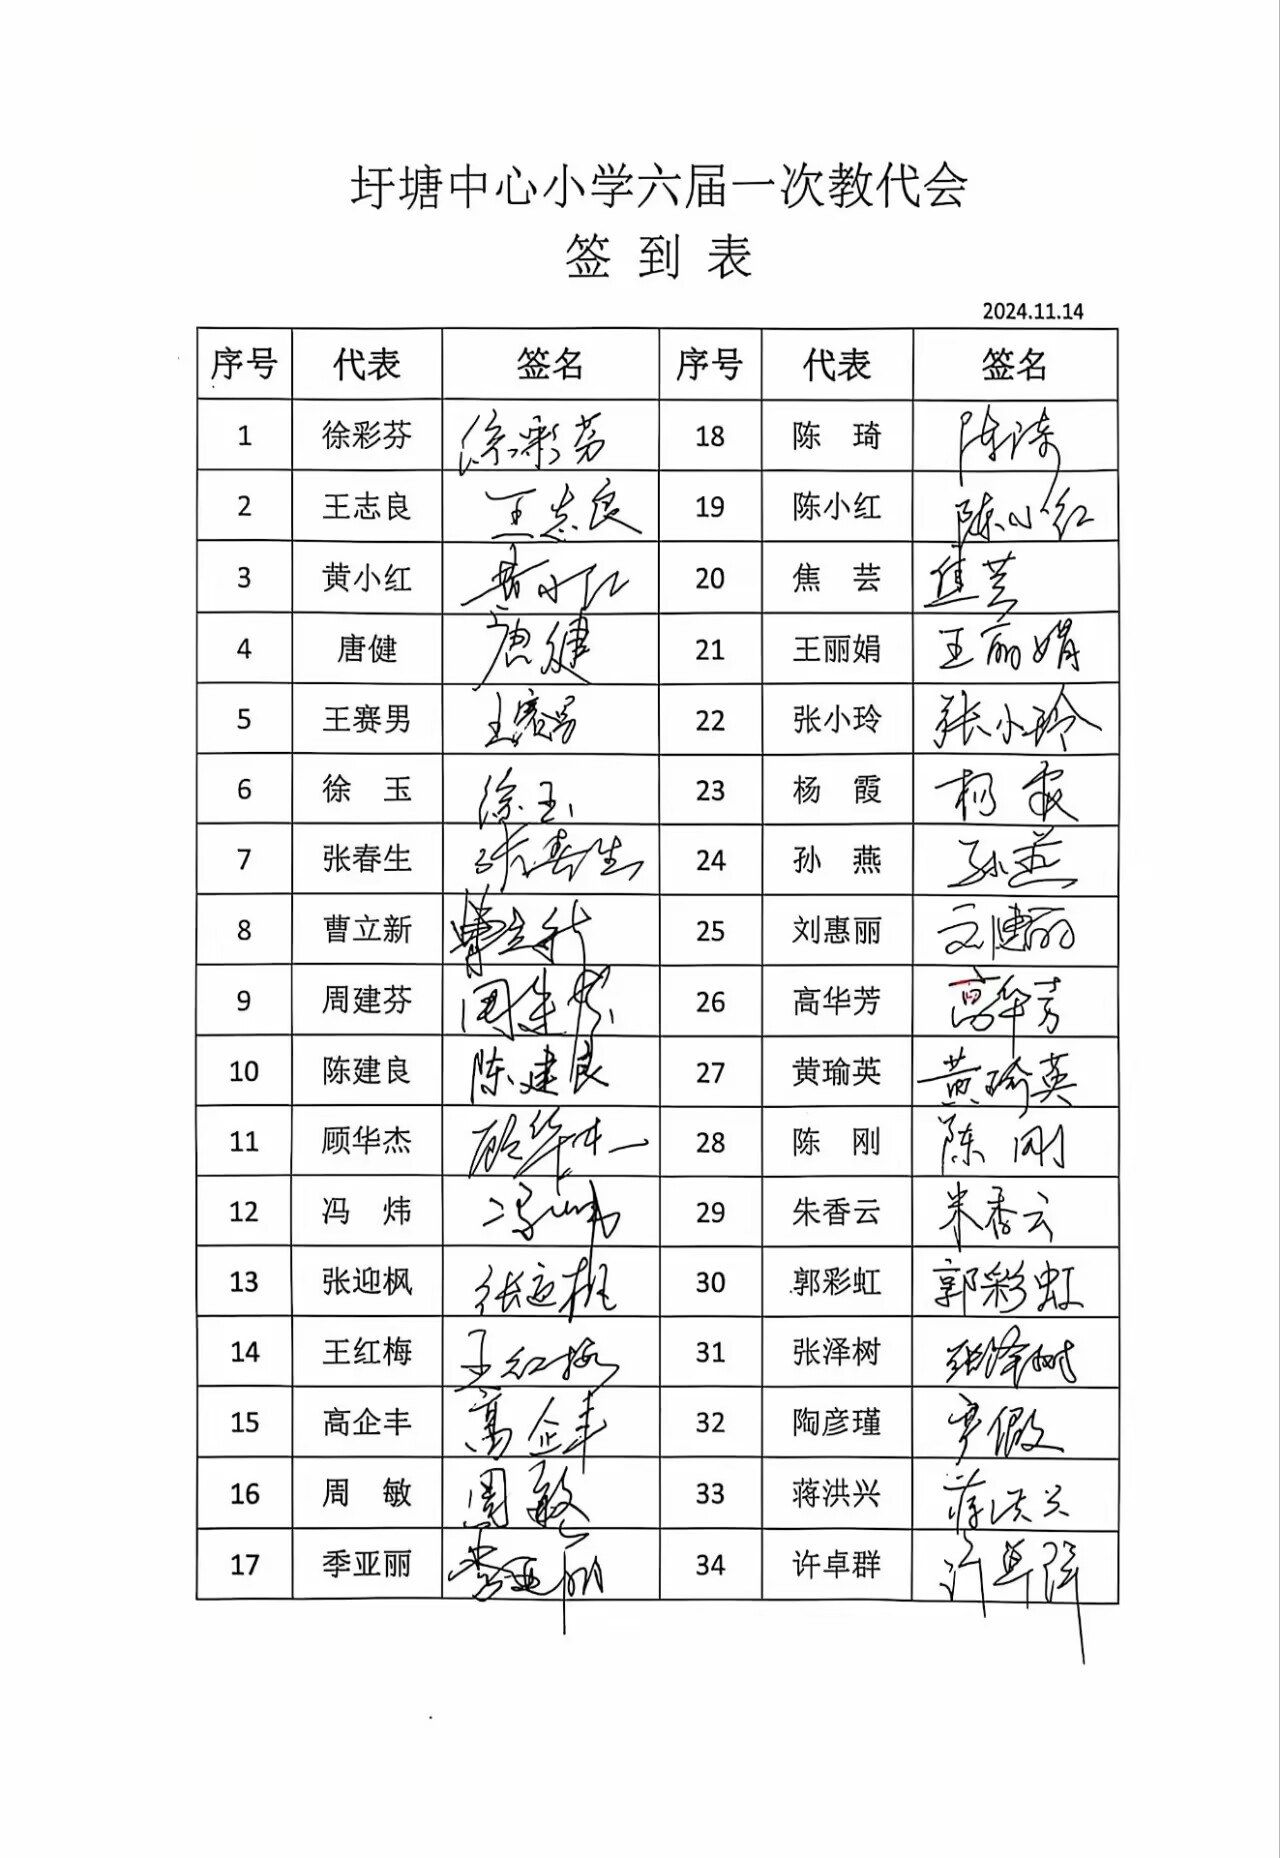 圩塘中心小学六届一次教代会
签到表
2024.11.14
序号 代表 签名 序号 代表 签名
1 徐彩芬 徐彩芬 18 陈琦 陈琦
2 王志良 王志良 19 陈小红 陈小红
3 黄小红 黄小红 20 焦芸 焦芸
4 唐健 唐健 21 王丽娟 王丽娟
5 王赛男 王赛男 22 张小玲 张小玲
6 徐玉 徐玉 23 杨霞 杨霞
7 张春生 张春生 24 孙燕 孙燕
8 曹立新 曹立新 25 刘惠丽 刘惠丽
9 周建芬 周建芬 26 高华芳 高华芳
10 陈建良 陈建良 27 黄瑜英 黄瑜英
11 顾华杰 顾华杰 28 陈刚 陈刚
12 冯炜 冯炜 29 朱香云 朱香云
13 张迎枫 张迎枫 30 郭彩虹 郭彩虹
14 王红梅 王红梅 31 张泽树 张泽树
15 高企丰 高企丰 32 陶彦瑾 产假
16 周敏 周敏 33 蒋洪兴 蒋洪兴
17 季亚丽 季亚丽 34 许卓群 许卓群